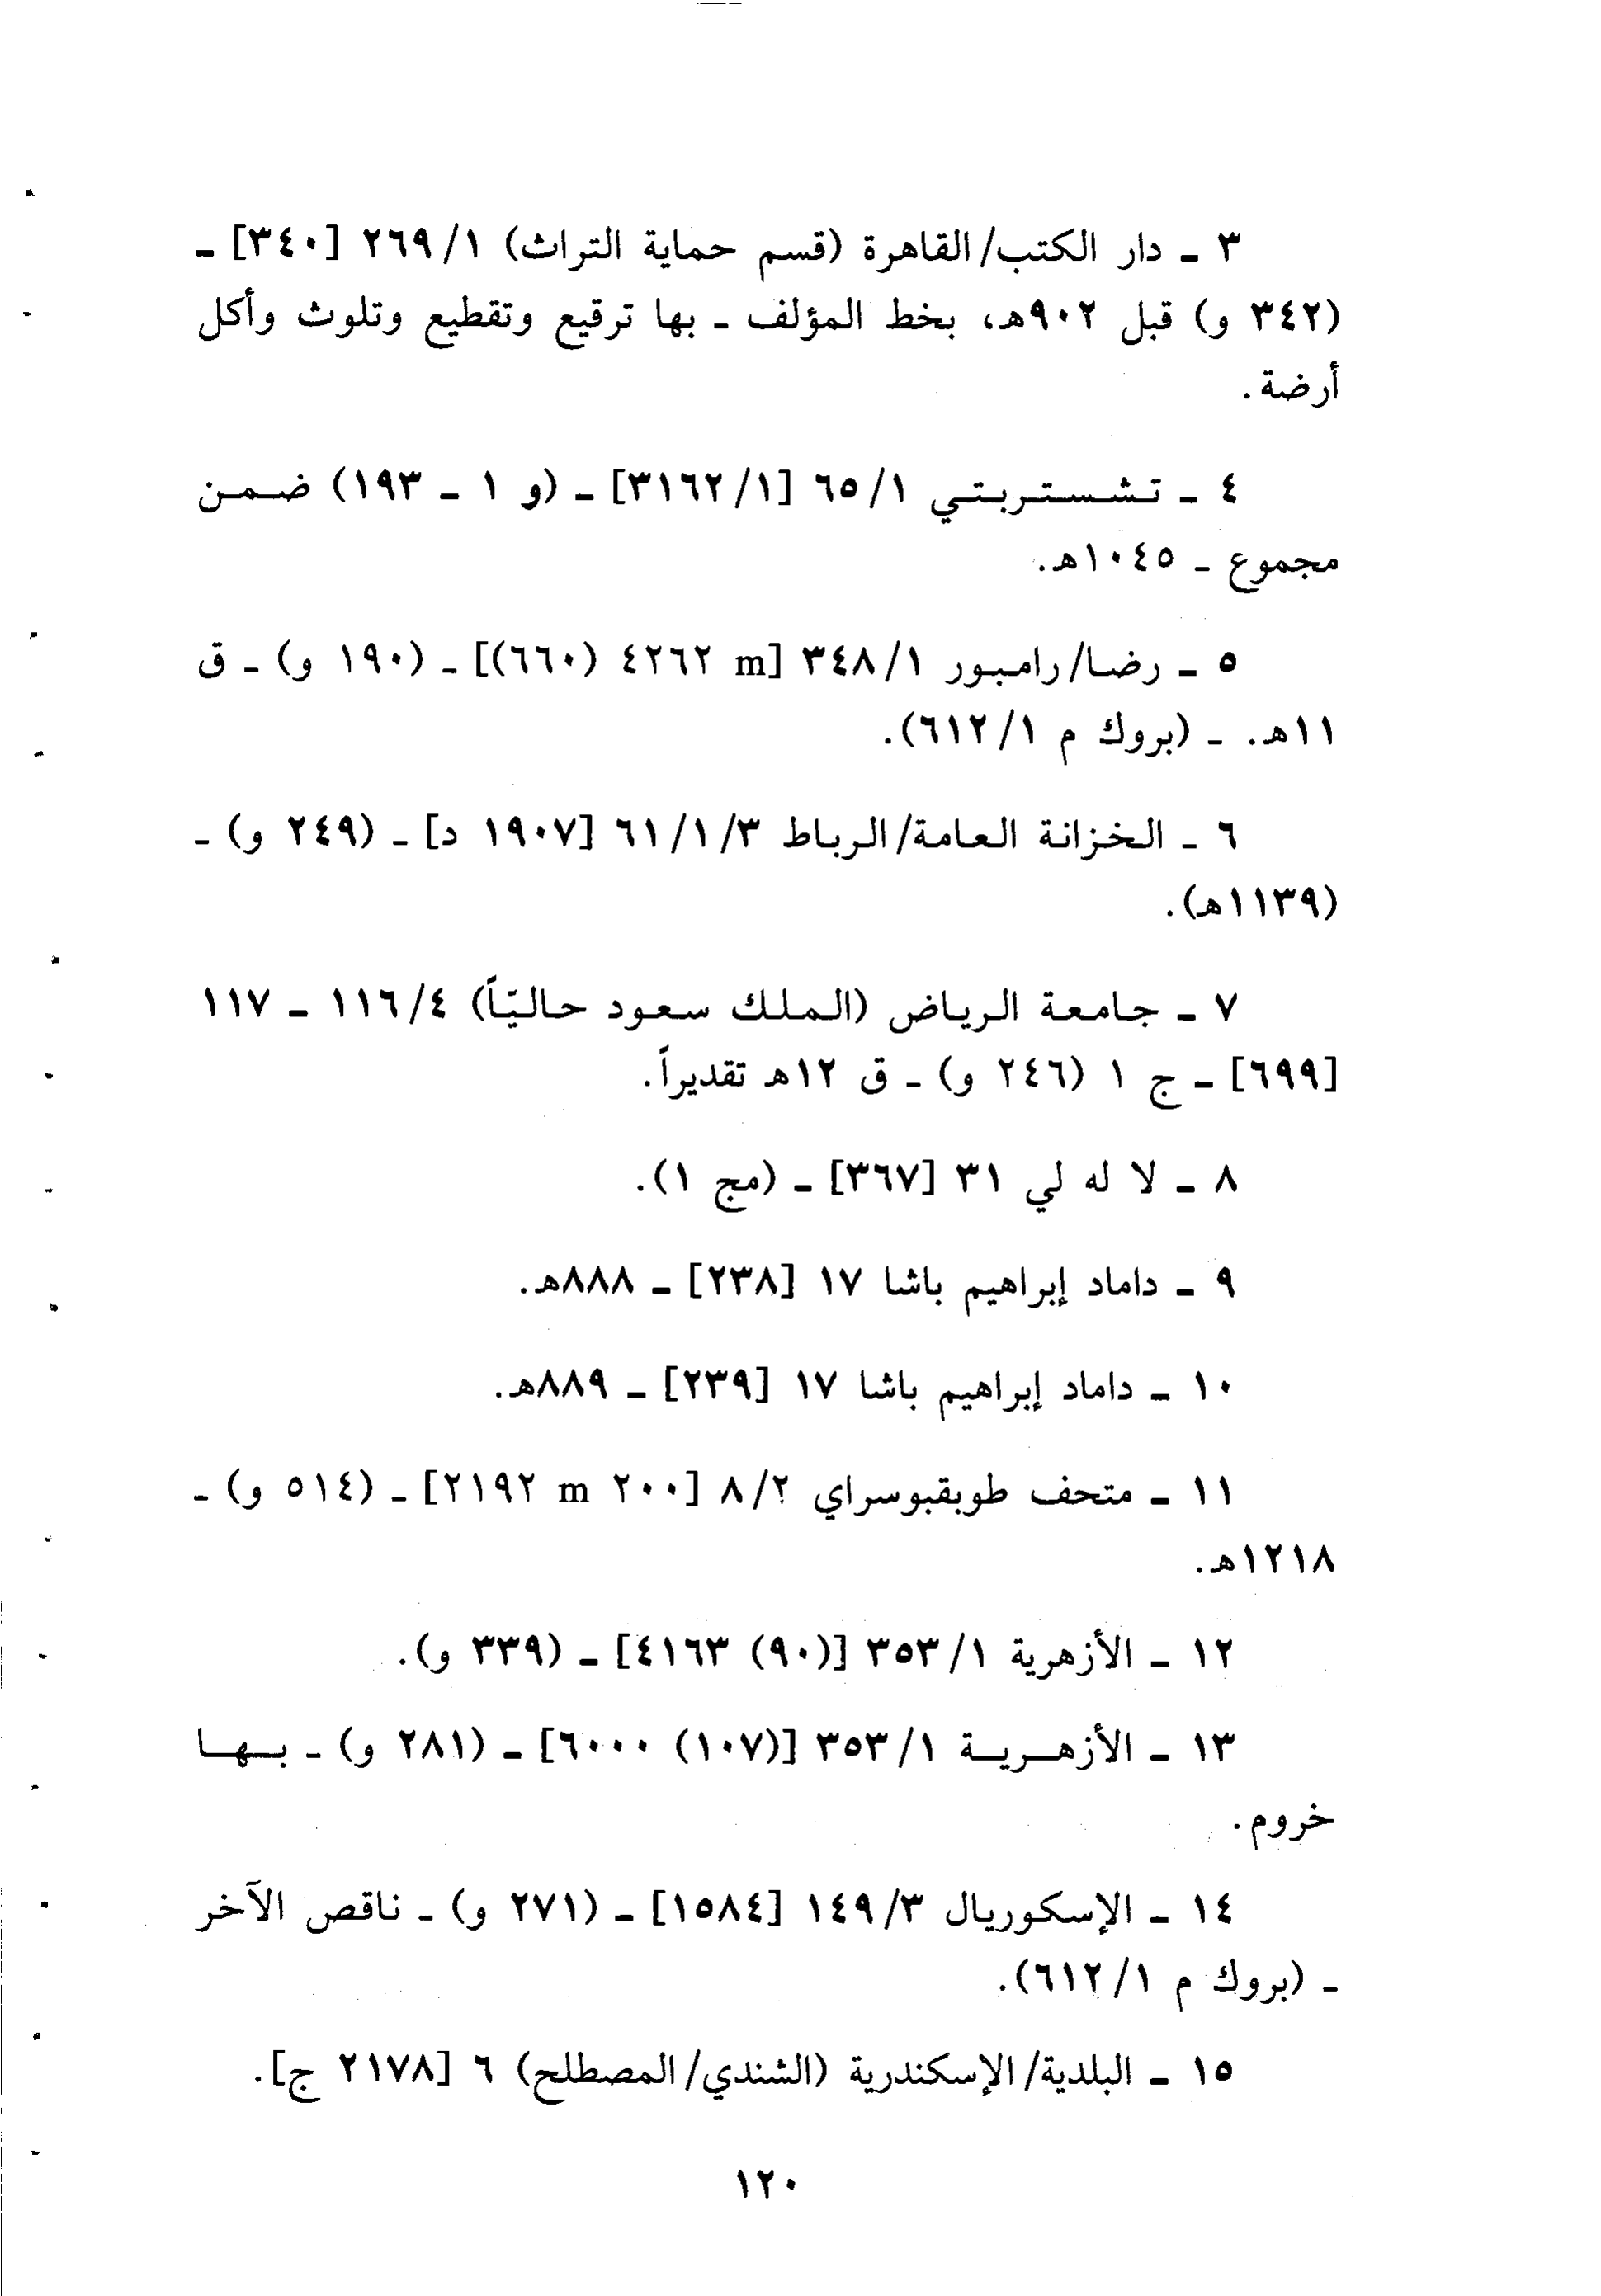 ٣ ـ دار الكتب/القاهرة (قسم حماية التراث) ٢٦٩/١ [٣٤٠] ـ
(٣٤٢ و) قبل ٩٠٢هـ، بخط المؤلف ـ بها ترقيع وتقطيع وتلوث وأكل
أرضة.
٤ ـ تشستربتي ٦٥/١ [٣١٦٢/١] ـ (و ١ ـ ١٩٣) ضمن
مجموع ـ ١٠٤٥هـ.
٥ ـ رضا/رامبور ٣٤٨/١ [٤٢٦٢ m (٦٦٠)] ـ (١٩٠ و) ـ ق
١١هـ. ـ (بروك م ٦١٢/١).
٦ ـ الخزانة العامة/الرباط ٦١/١/٣ [١٩٠٧ د] ـ (٢٤٩ و) ـ
(١١٣٩هـ).
٧ ـ جامعة الرياض (الملك سعود حاليّاً) ١١٦/٤ ـ ١١٧
[٦٩٩] ـ ج ١ (٢٤٦ و) ـ ق ١٢هـ تقديراً.
٨ ـ لا له لي ٣١ [٣٦٧] ـ (مج ١).
٩ ـ داماد إبراهيم باشا ١٧ [٢٣٨] ـ ٨٨٨هـ.
١٠ ـ داماد إبراهيم باشا ١٧ [٢٣٩] ـ ٨٨٩هـ.
١١ ـ متحف طوبقبوسراي ٨/٢ [٢٠٠ m ٢١٩٢] ـ (٥١٤ و) ـ
١٢١٨هـ.
١٢ ـ الأزهرية ٣٥٣/١ [(٩٠) ٤١٦٣] ـ (٣٣٩ و).
١٣ ـ الأزهرية ٣٥٣/١ [(١٠٧) ٦٠٠٠] ـ (٢٨١ و) ـ بها
خروم.
١٤ ـ الإسكوريال ١٤٩/٣ [١٥٨٤] ـ (٢٧١ و) ـ ناقص الآخر
ـ (بروك م ٦١٢/١).
١٥ ـ البلدية/الإسكندرية (الشندي/المصطلح) ٦ [٢١٧٨ ج].
١٢٠